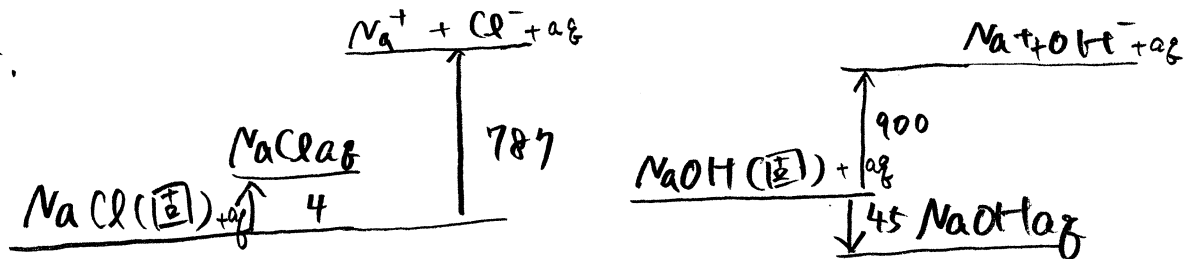 Na⁺ + Cl⁻ + aq
787
NaClaq
NaCl(固)+aq
4
Na⁺+OH⁻+aq
900
NaOH(固)+aq
45
NaOHaq